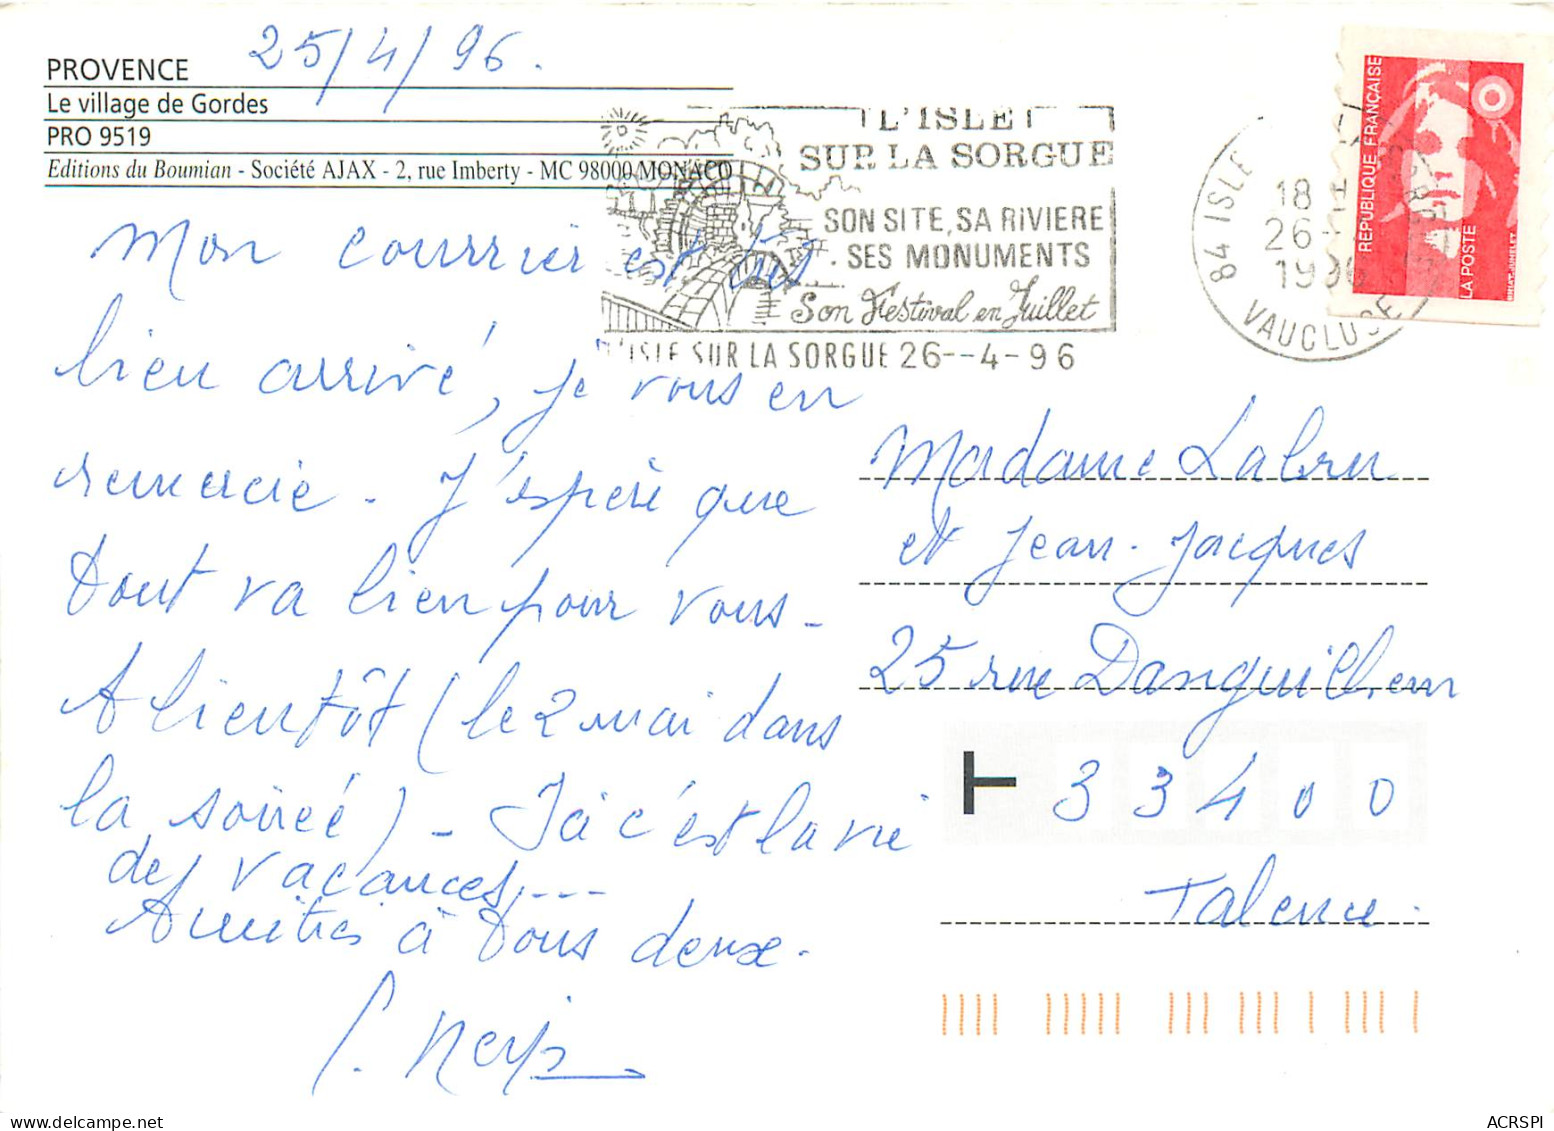 25/4/96.
PROVENCE
Le village de Gordes
PRO 9519
Editions du Boumian - Société AJAX - 2, rue Imberty - MC 98000 MONACO
L'ISLE
SUR LA SORGUE
SON SITE, SA RIVIERE
SES MONUMENTS
Son Festival en Juillet
L'ISLE SUR LA SORGUE 26--4-96
84 ISLE
18 H
26-
1996
VAUCLUSE
REPUBLIQUE FRANÇAISE
LA POSTE
Mon courrier est
bien arrivé, je vous en
remercie. J'espère que
tout va bien pour vous.
A bientôt (le 2 mai dans
la soirée) - Ici c'est la vie
de vacances...
Amitiés à tous deux.
Madame Labru
et Jean-Jacques
25 rue Danguilhem
33400
Talence.
ACRSPI